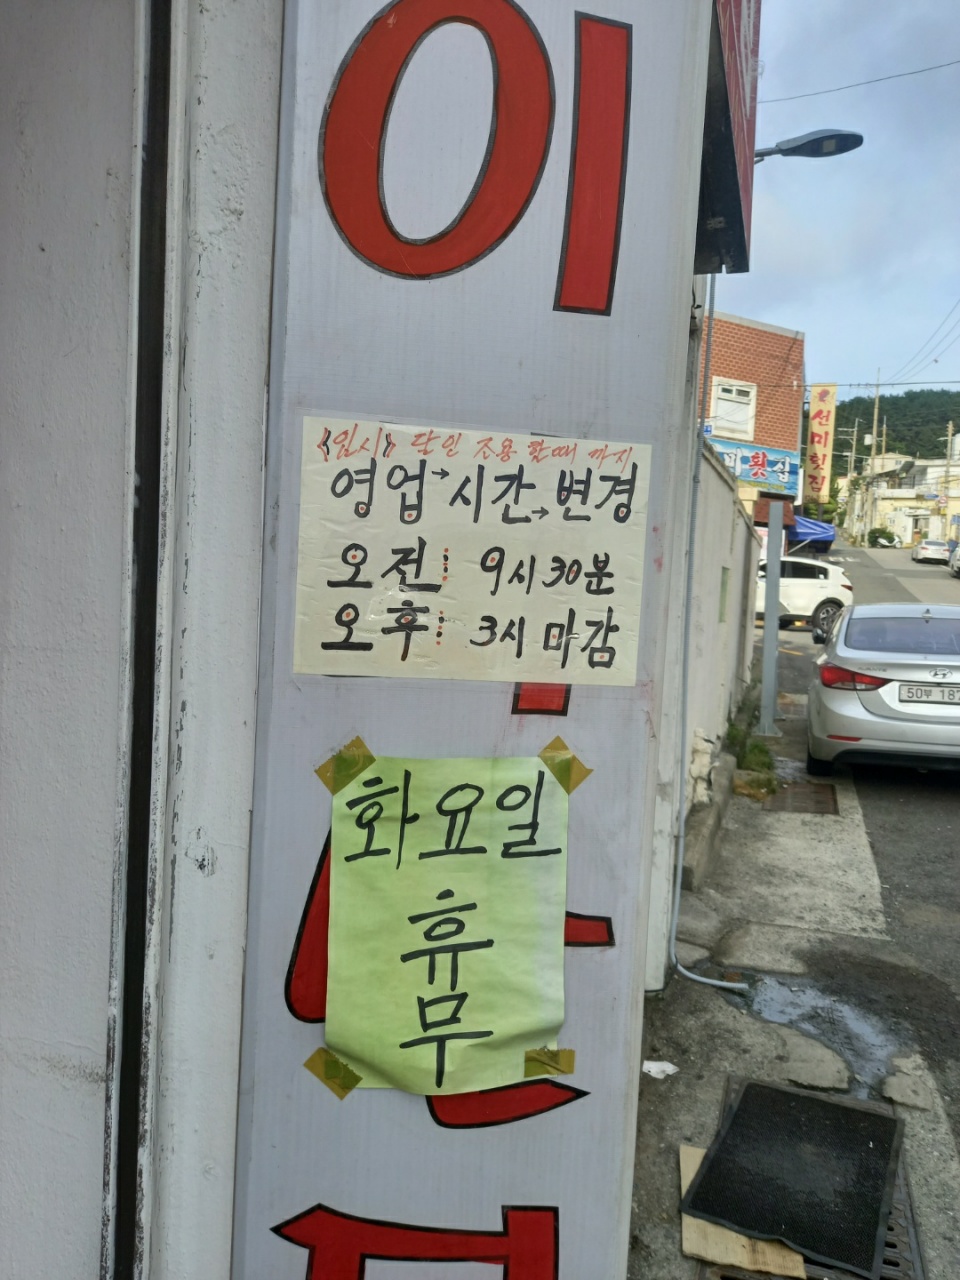 이
《임시》 달인 조용 할때 까지
영업→시간→변경
오전: 9시 30분
오후: 3시 마감
화요일
휴
무
선미횟집
횟집
50부 187